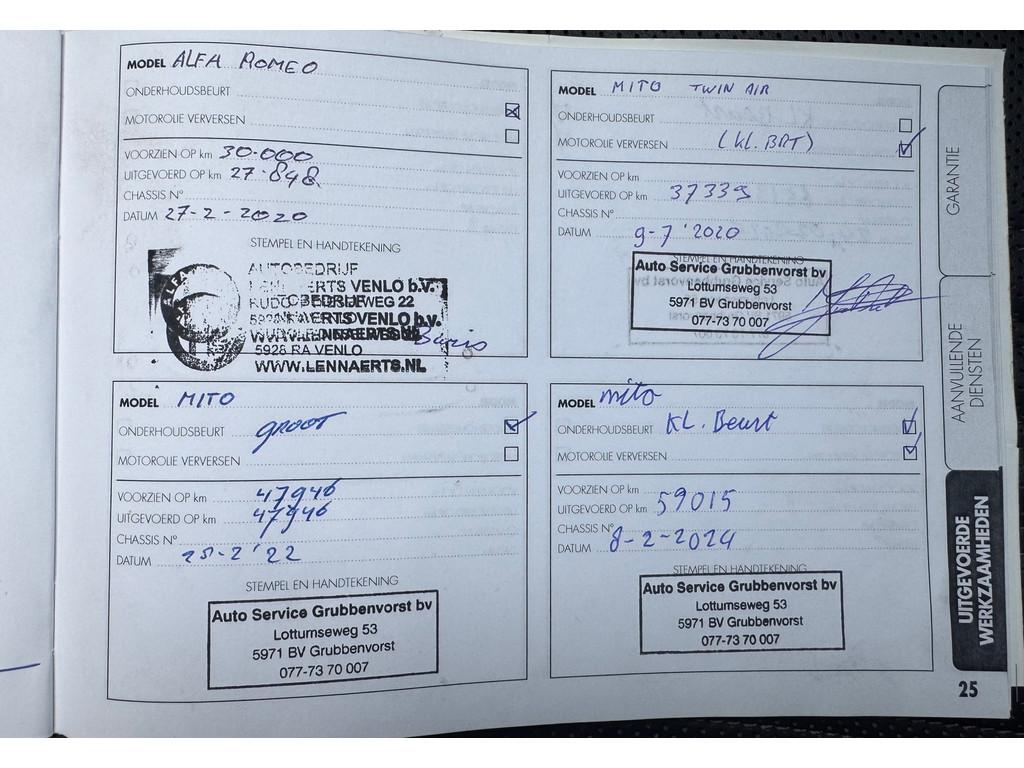 MODEL ALFA ROMEO
ONDERHOUDSBEURT
MOTOROLIE VERVERSEN
VOORZIEN OP km 30.000
UITGEVOERD OP km 27.848
CHASSIS N°
DATUM 27-2-2020
STEMPEL EN HANDTEKENING
AUTOBEDRIJF
VENLO b.v.
WEG 22
VENLO b.v.
5928 RA VENLO
WWW.LENNAERTS.NL
MODEL MITO TWIN AIR
ONDERHOUDSBEURT
MOTOROLIE VERVERSEN (KL. BRT)
VOORZIEN OP km
UITGEVOERD OP km 37339
CHASSIS N°
DATUM 9-7 '2020
STEMPEL EN HANDTEKENING
Auto Service Grubbenvorst bv
Lottumseweg 53
5971 BV Grubbenvorst
077-73 70 007
MODEL MITO
ONDERHOUDSBEURT GROOT
MOTOROLIE VERVERSEN
VOORZIEN OP km 47946
UITGEVOERD OP km 47946
CHASSIS N°
DATUM 25-2 '22
STEMPEL EN HANDTEKENING
Auto Service Grubbenvorst bv
Lottumseweg 53
5971 BV Grubbenvorst
077-73 70 007
MODEL mito
ONDERHOUDSBEURT KL. Beurt
MOTOROLIE VERVERSEN
VOORZIEN OP km
UITGEVOERD OP km 59015
CHASSIS N°
DATUM 8-2-2024
STEMPEL EN HANDTEKENING
Auto Service Grubbenvorst bv
Lottumseweg 53
5971 BV Grubbenvorst
077-73 70 007
GARANTIE
AANVULLENDE
DIENSTEN
UITGEVOERDE
WERKZAAMHEDEN
25